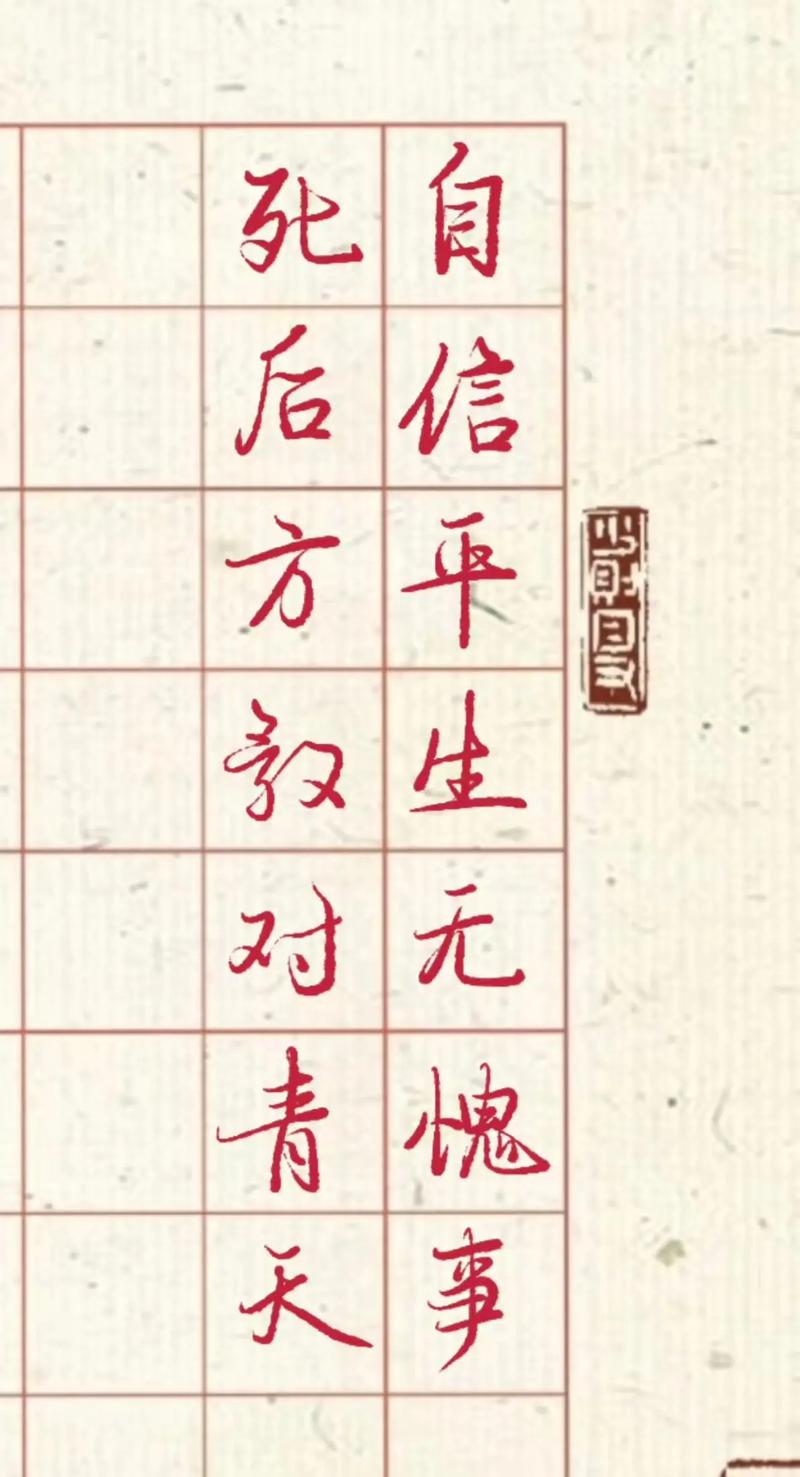 自信平生无愧事
死后方敢对青天